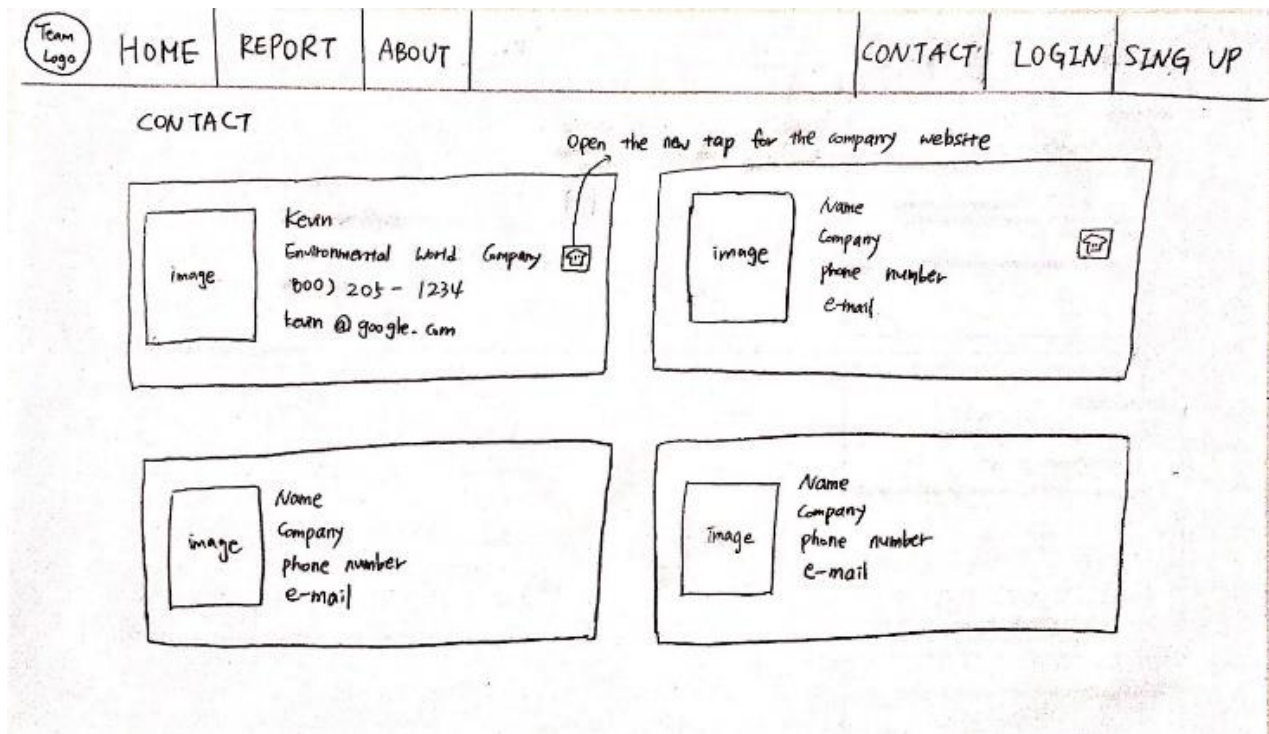 Team Logo
HOME REPORT ABOUT CONTACT LOGIN SING UP
CONTACT
Open the new tap for the company website
image
Kevin
Environmental World Company
800) 205 - 1234
kevin @ google.com
image
Name
Company
phone number
e-mail
image
Name
Company
phone number
e-mail
image
Name
Company
phone number
e-mail